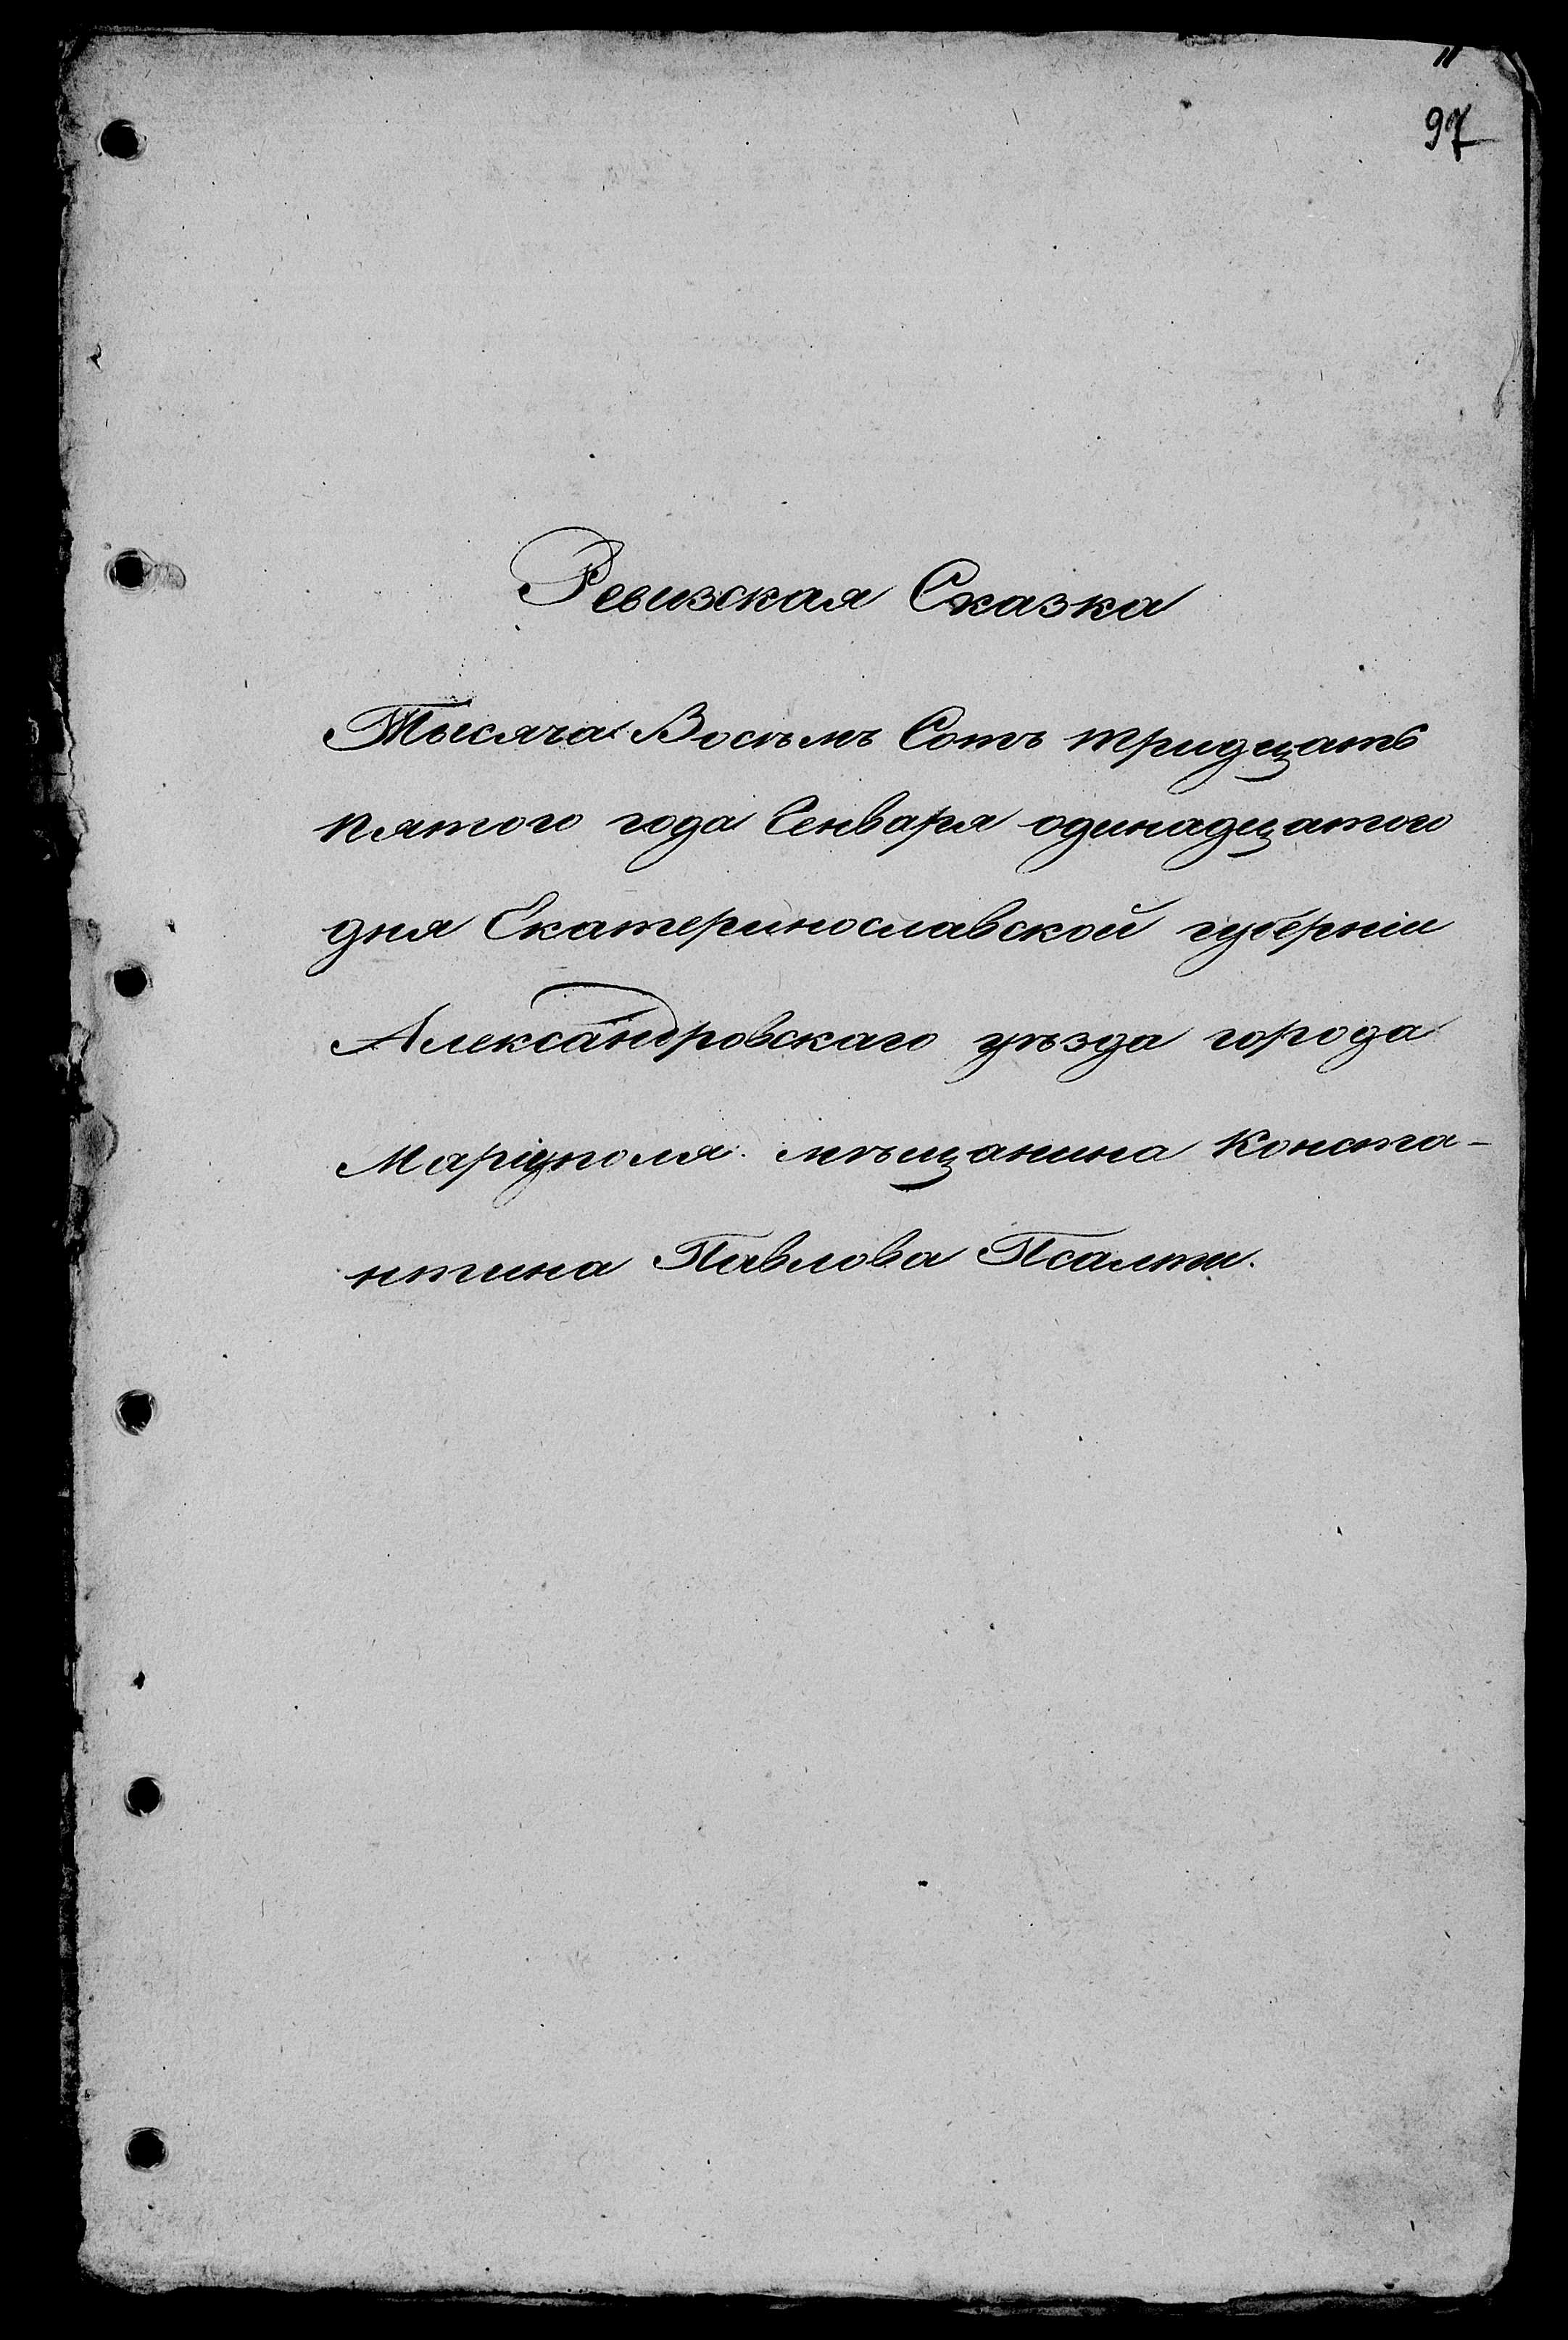 97
Ревизская Сказка
Тысяча Восѣмъ Сотъ тридцать
пятого года Генваря одинадцатого
дня Екатеринославской губерніи
Александровскаго уѣзда города
Маріуполя мѣщанина Конста-
нтина Павлова Псалти.